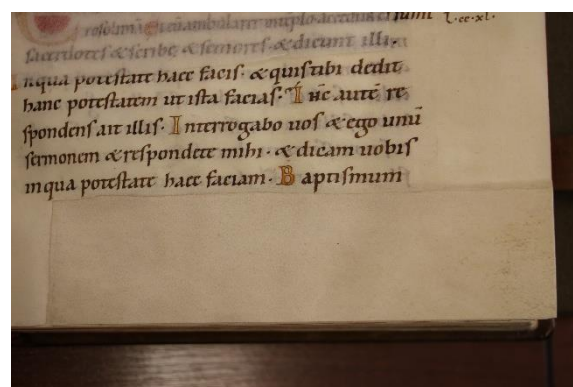 rosolimā & cū ambularet in teplo accedunt ei sūmi l. cc. xl.
sacerdotes & scribę & seniores. & dicunt illi.
Inqua potestate haec facis. & quis tibi dedit
hanc potestatem ut ista facias. Ihc̄ autē re
spondens ait illis. Interrogabo uos & ego unū
sermonem & respondete mihi. & dicam uobis
inqua potestate haec faciam. Baptismum